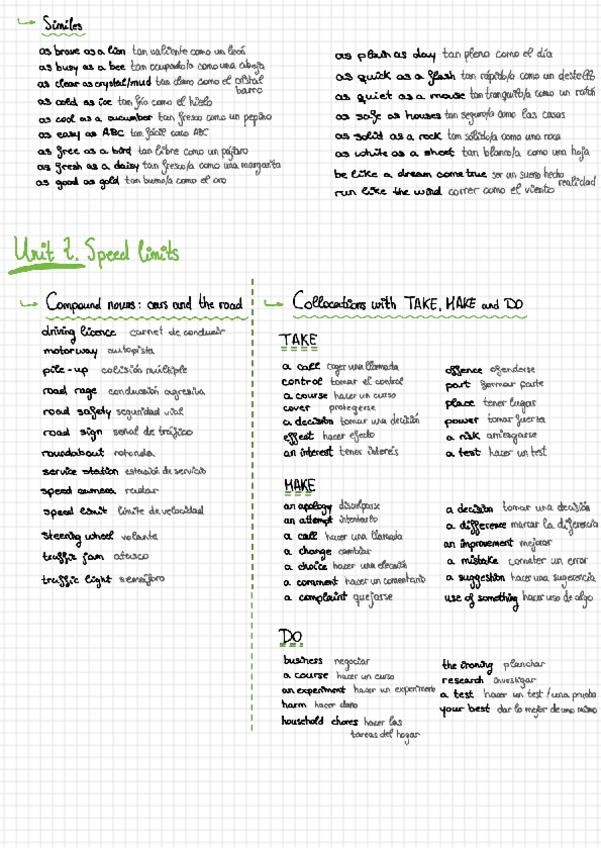 Similes
as brave as a lion tan valiente como un león
as busy as a bee tan ocupado/a como una abeja
as clear as crystal/mud tan claro como el cristal
barro
as cold as ice tan frío como el hielo
as cool as a cucumber tan fresco como un pepino
as easy as ABC tan fácil como ABC
as free as a bird tan libre como un pájaro
as fresh as a daisy tan fresco/a como una margarita
as good as gold tan bueno/a como el oro
as plain as day tan pleno como el día
as quick as a flash tan rápido/a como un destello
as quiet as a mouse tan tranquilo/a como un ratón
as safe as houses tan seguro/a como las casas
as solid as a rock tan sólido/a como una roca
as white as a sheet tan blanco/a como una hoja
be like a dream come true ser un sueño hecho
realidad
run like the wind correr como el viento
Unit 2. Speed limits
Compound nouns: cars and the road
driving licence carnet de conducir
motorway autopista
pile-up colisión múltiple
road rage conducción agresiva
road safety seguridad vial
road sign señal de tráfico
roundabout rotonda
service station estación de servicio
speed camera radar
speed limit límite de velocidad
steering wheel volante
traffic jam atasco
traffic light semáforo
Collocations with TAKE, MAKE and DO
TAKE
a call coger una llamada
control tomar el control
a course hacer un curso
cover protegerse
a decision tomar una decisión
effect hacer efecto
an interest tener interés
offence ofenderse
part formar parte
place tener lugar
power tomar fuerza
a risk arriesgarse
a test hacer un test
MAKE
an apology disculparse
an attempt intentarlo
a call hacer una llamada
a change cambiar
a choice hacer una elección
a comment hacer un comentario
a complaint quejarse
a decision tomar una decisión
a difference marcar la diferencia
an improvement mejorar
a mistake cometer un error
a suggestion hacer una sugerencia
use of something hacer uso de algo
DO
business negociar
a course hacer un curso
an experiment hacer un experimento
harm hacer daño
household chores hacer las
tareas del hogar
the ironing planchar
research investigar
a test hacer un test/una prueba
your best dar lo mejor de uno mismo